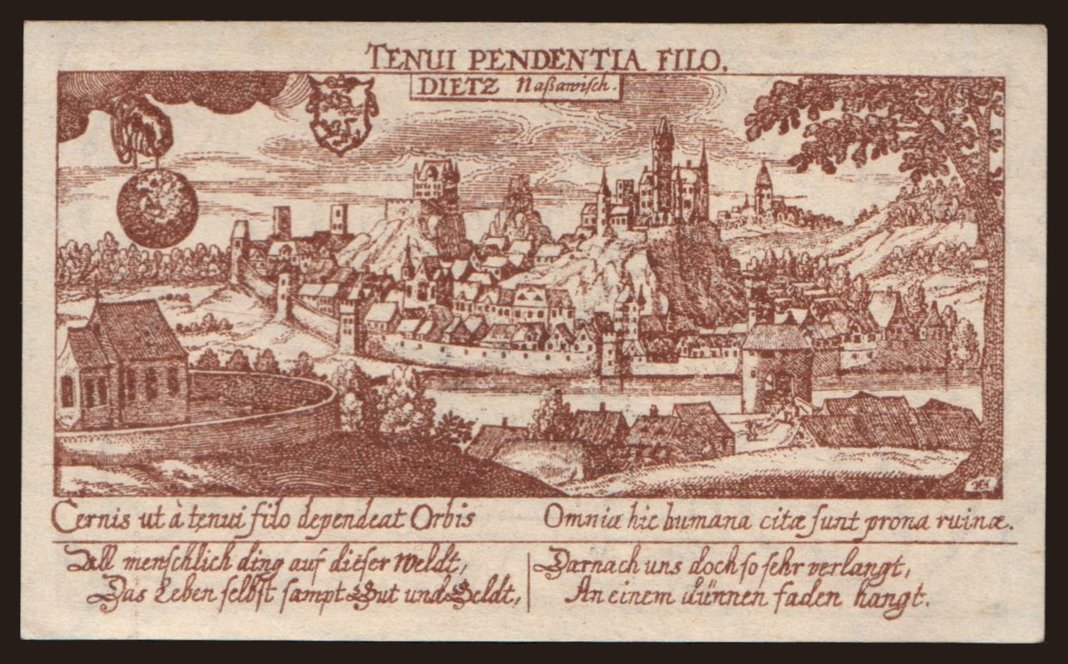 TENUI PENDENTIA FILO.
DIETZ Naßawiſch.
Cernis ut à tenui filo dependeat Orbis
Omnia hic humana citæ ſunt prona ruinæ.
All menſchlich ding auf dieſer Weldt,
Das Leben ſelbſt ſampt Gut und Geldt,
Darnach uns doch ſo ſehr verlangt,
An einem dünnen faden hangt.